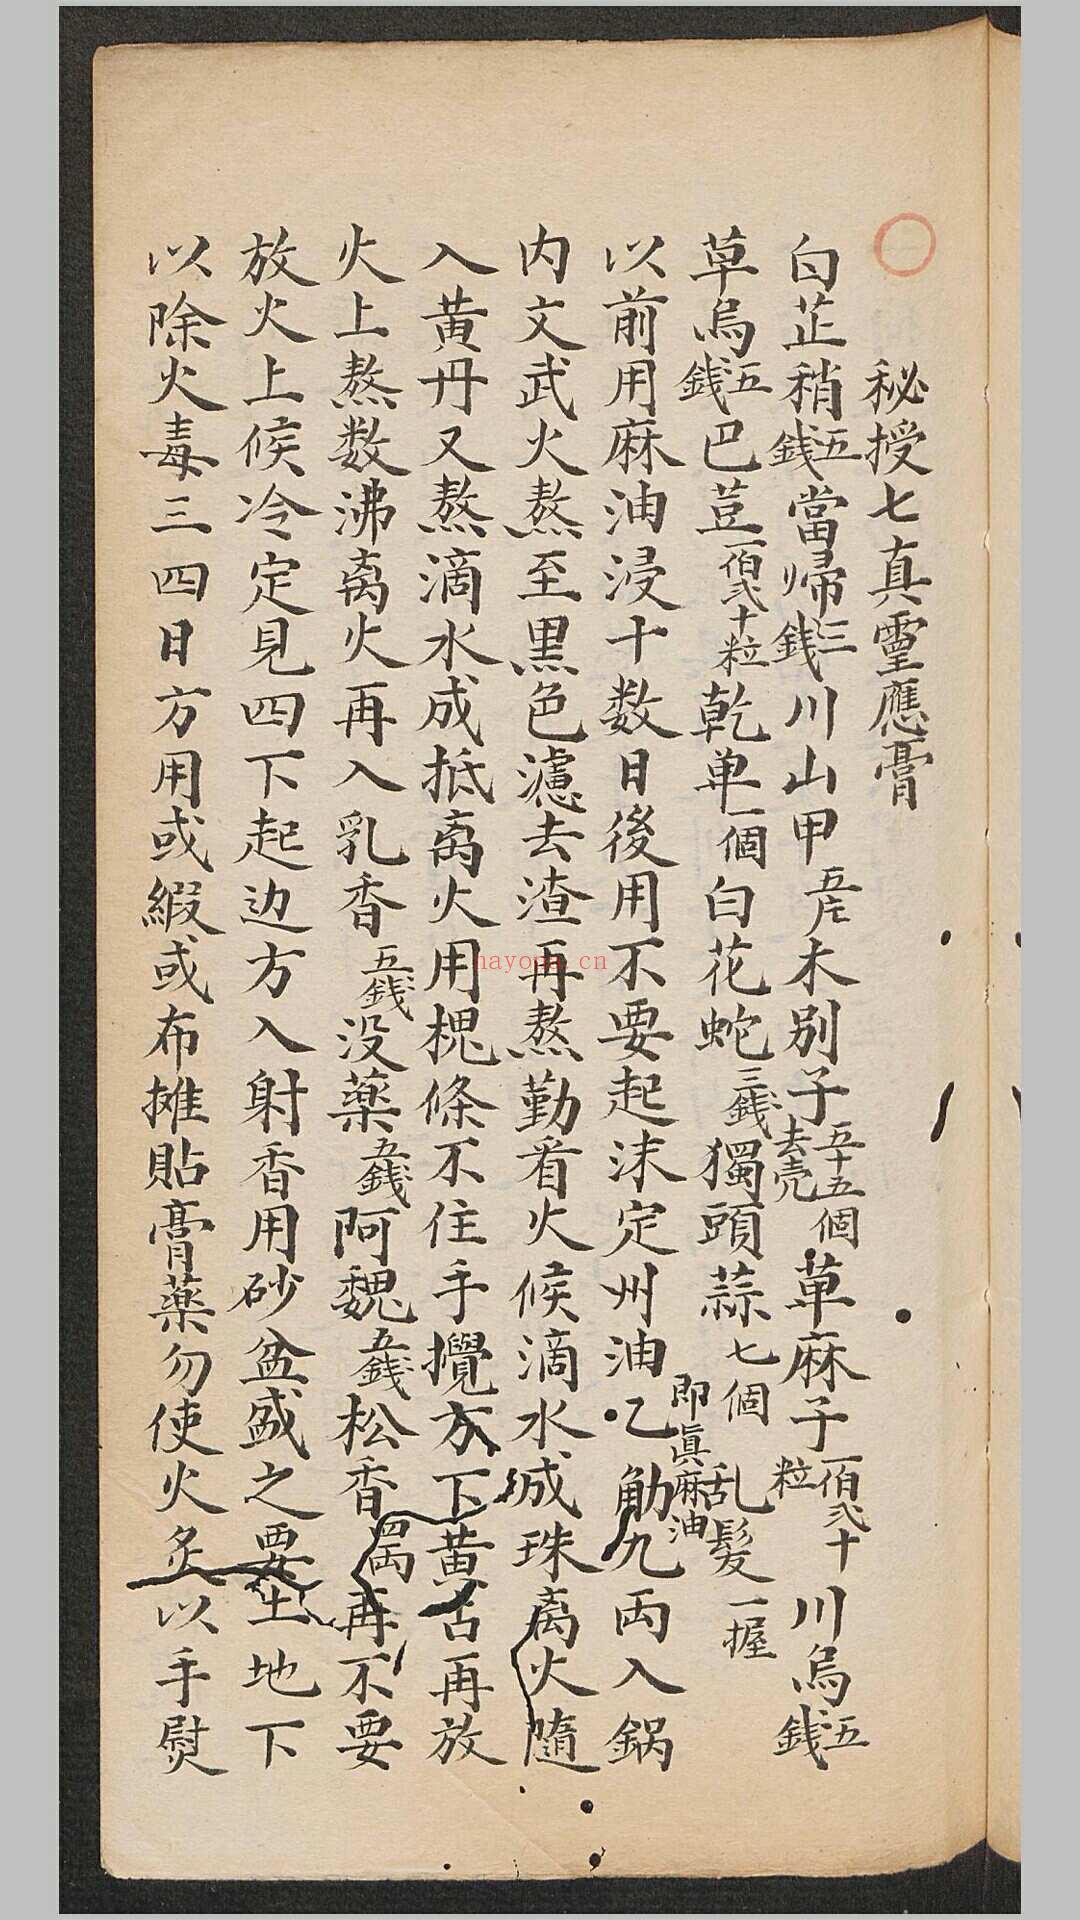 秘授七真靈應膏
白芷稍五錢當帰三錢川山甲五片木別子五十五個去壳草麻子一佰弍十粒川烏五錢
草烏五錢巴荳一佰弍十粒乾单一個白花蛇三錢獨頭蒜七個乱髮一握
以前用麻油浸十数日後用不要起沫定州油即眞麻油乙觔九両入鍋
内文武火熬至黒色濾去渣再熬勤看火候滴水成珠离火隨
入黄丹又熬滴水成抵离火用槐條不住手攪方下黄古再放
火上熬数沸离火再入乳香五錢没薬五錢阿魏五錢松香四両再不要
放火上候冷定見四下起边方入射香用砂盆盛之要土地下
以除火毒三四日方用或緞或布摊貼膏薬勿使火炙以手熨
hayona.cn